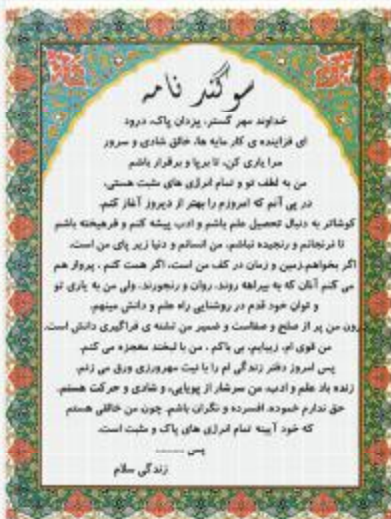 سوگند نامه
خداوند مهر گستر، یزدان پاک، درود
ای فزاینده ی کار مایه ها، خالق شادی و سرور
مرا یاری کن، تا برپا و برقرار باشم
من به لطف تو و تمام انرژی های مثبت هستی،
در پی آنم که امروزم را بهتر از دیروز آغاز کنم.
کوشاتر به دنبال تحصیل علم باشم و ادب پیشه کنم و فرهیخته باشم
تا نرنجانم و رنجیده نباشم، من انسانم و دنیا زیر پای من است.
اگر بخواهم،زمین و زمان در کف من است، اگر همت کنم ، پرواز هم
می کنم آنان که به بیراهه روند، روان و رنجورند، ولی من به یاری تو
و توان خود قدم در روشنایی راه علم و دانش مینهم.
درون من پر از صلح و صفاست و ضمیر من تشنه ی فراگیری دانش است.
من قوی ام، زیبایم، بی باکم ، من با لبخند معجزه می کنم.
پس امروز دفتر زندگی ام را با نیت مهرورزی ورق می زنم.
زنده باد علم و ادب، من سرشار از پویایی، و شادی و حرکت هستم.
حق ندارم خموده، افسرده و نگران باشم. چون من خالقی هستم
که خود آیینه تمام انرژی های پاک و مثبت است.
پس ..........
زندگی سلام